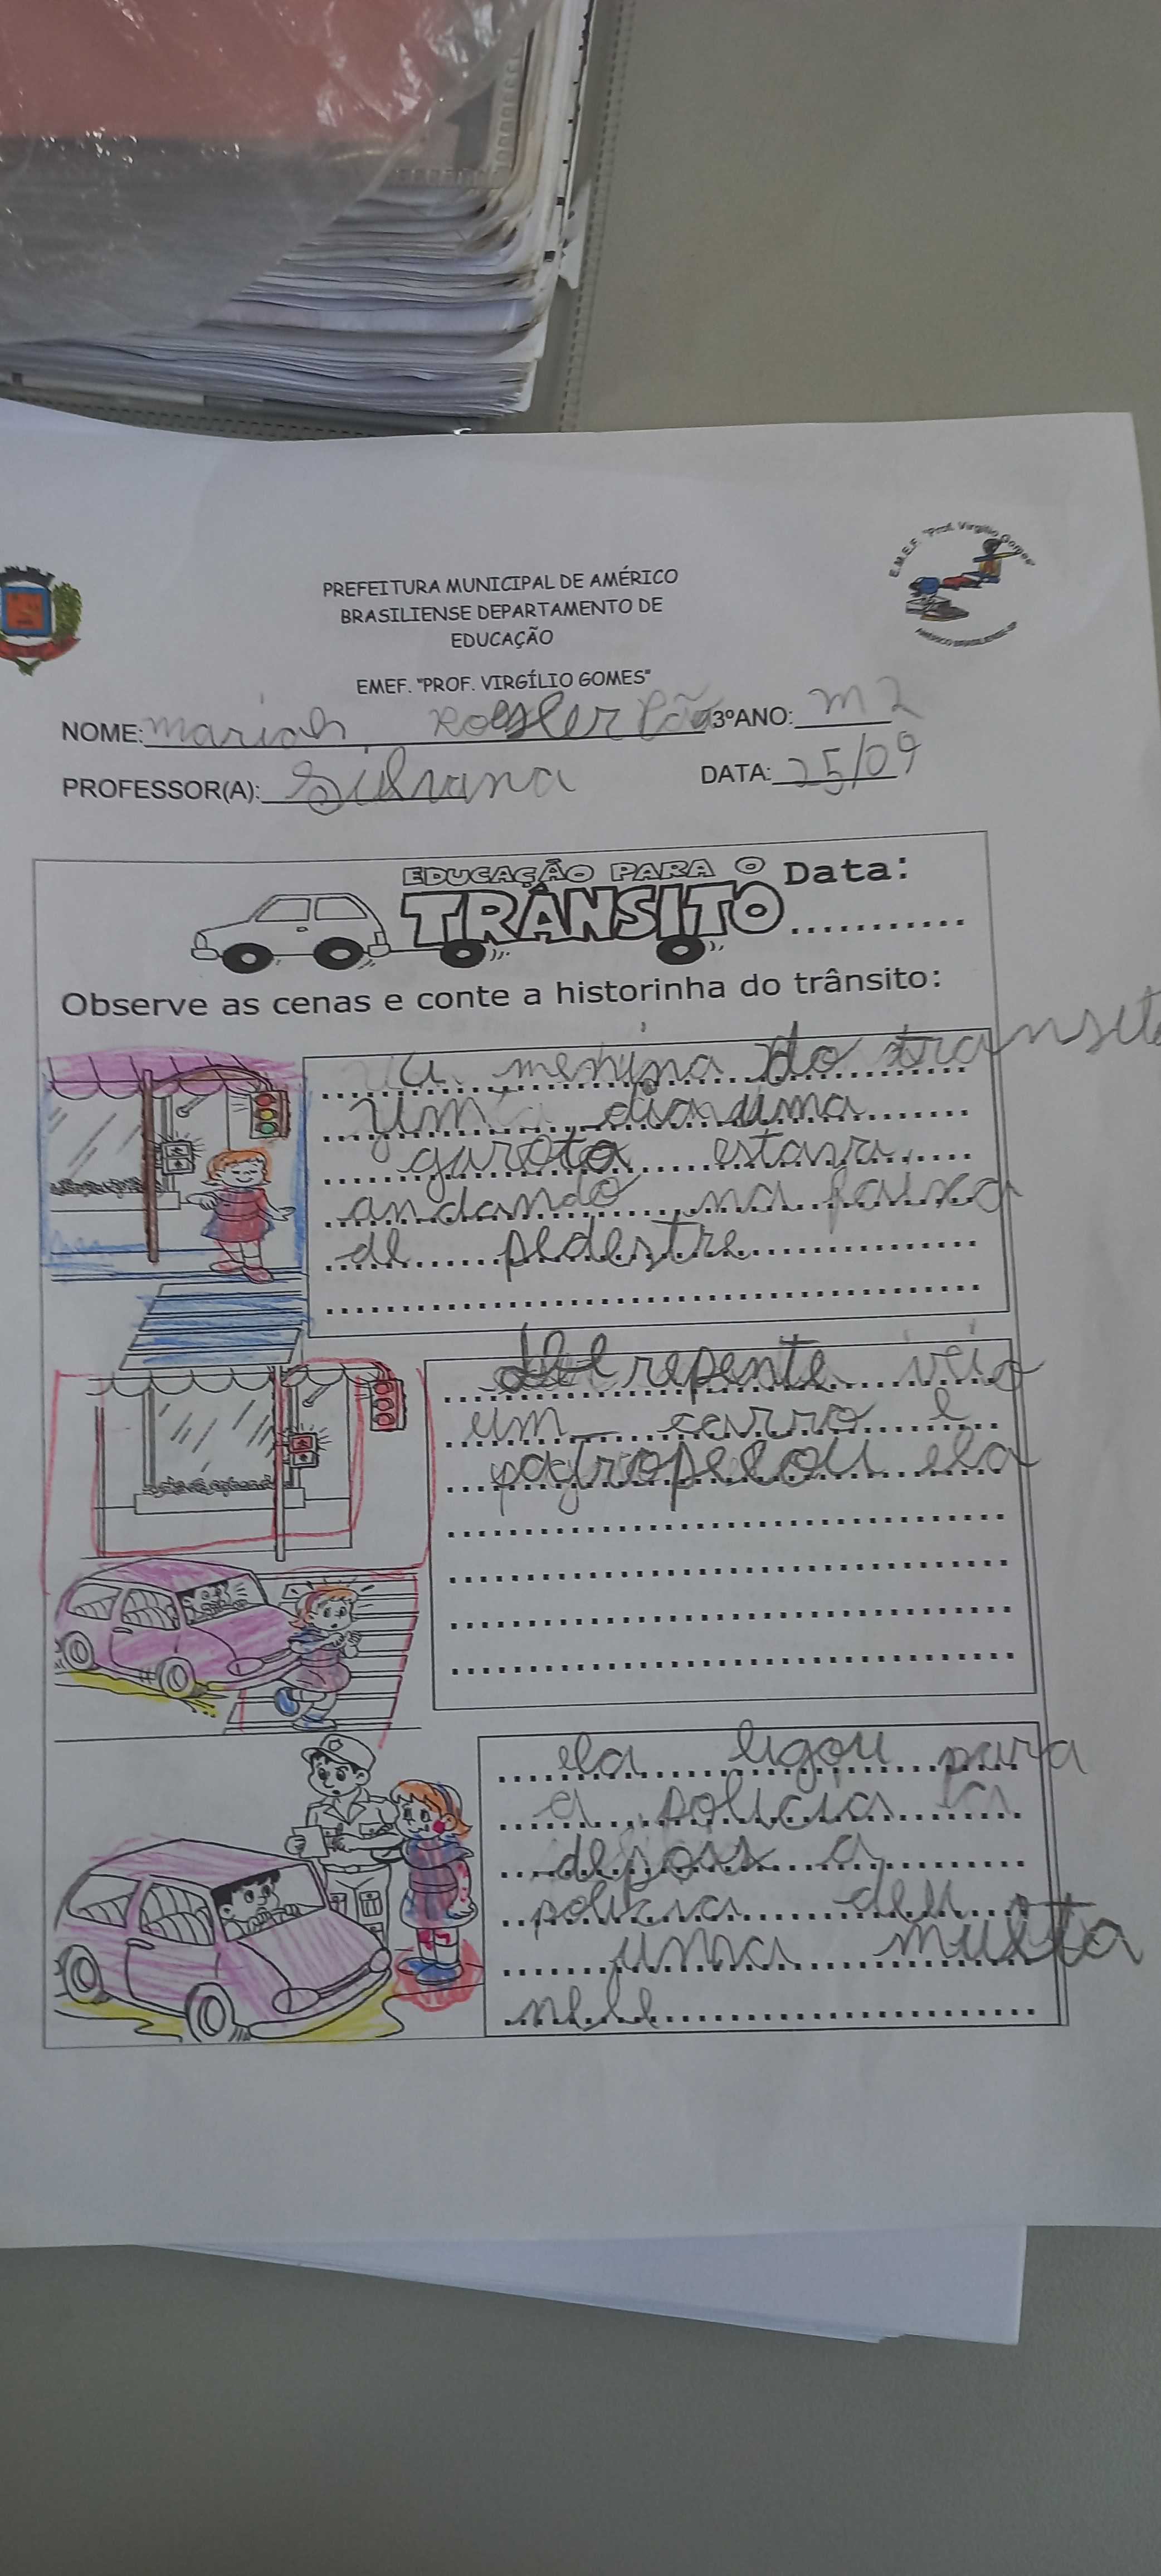 E.M.E.F. "Prof. Virgílio Gomes"
AMÉRICO BRASILIENSE-SP
PREFEITURA MUNICIPAL DE AMÉRICO
BRASILIENSE DEPARTAMENTO DE
EDUCAÇÃO
EMEF. "PROF. VIRGÍLIO GOMES"
NOME: mariah Roesler 3ºANO: m2
PROFESSOR(A): Silvana DATA: 25/09
EDUCAÇÃO PARA O Data:
TRÂNSITO
Observe as cenas e conte a historinha do trânsito:
a menina do transito
um dia uma
garota estava
andando na faixa
de pedestre
de repente veio
um carro e
atropelou ela
ela ligou para
a policia
depois a
policia deu
uma multa
nele